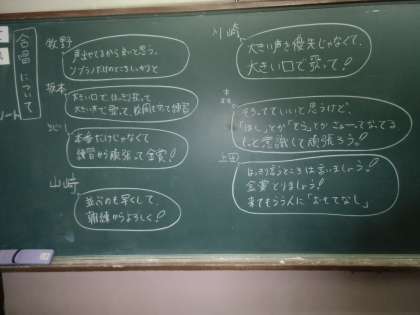 合唱について
牧野
声出せてるから良いと思う。
ソプラノだけのところしっかりと
坂本
大きい口ではっきり歌って
大きい声で歌って
本番だけじゃなくて
練習から頑張って金賞!
山崎
並ぶのも早くして、
朝練からよろしく!
川崎
大きい声を優先じゃなくて、
大きい口で歌って!
そろってていいと思うけど、
もっと意識して頑張ろう。
上田
はっきり言うところは言いましょう!
金賞とりましょう!
来てもらう人に「おもてなし」